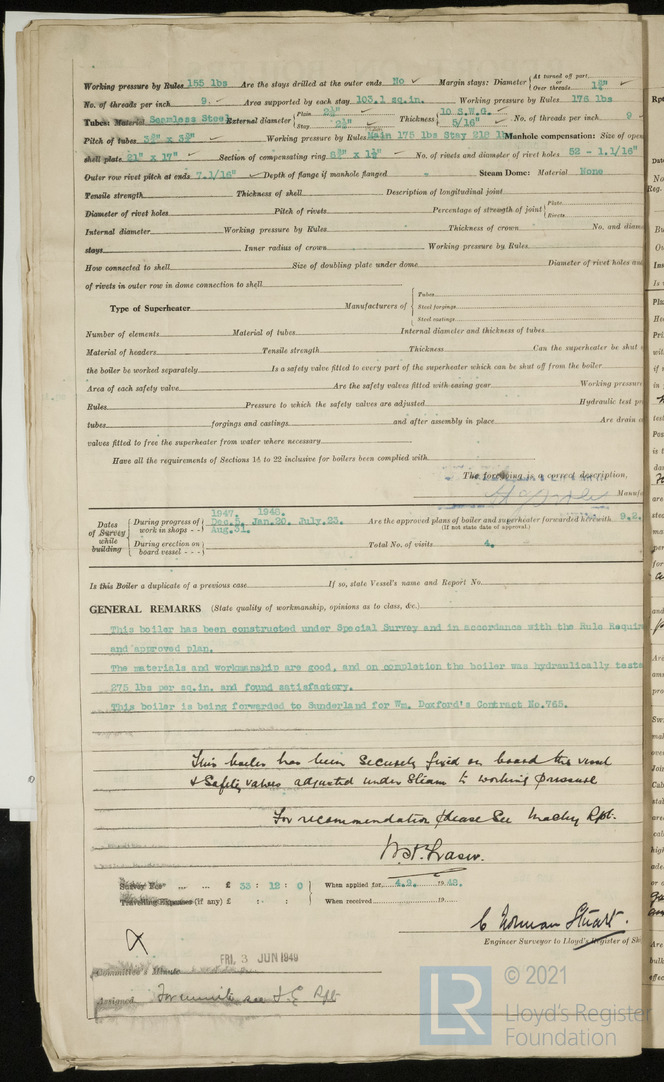 Working pressure by Rules 155 lbs Are the stays drilled at the outer ends No Margin stays: Diameter At turned off part, or Over threads 1⅝"
No. of threads per inch 9. Area supported by each stay 103.1 sq.in. Working pressure by Rules 176 lbs
Tubes: Material Seamless Steel External diameter Plain 2½" Stay 2½" Thickness 10 S.W.G. 5/16" No. of threads per inch 9
Pitch of tubes Working pressure by Rules Plain 175 lbs Stay 218 lb Manhole compensation: Size of open
shell plate 21" x 17" Section of compensating ring No. of rivets and diameter of rivet holes 52 - 1.1/16"
Outer row rivet pitch at ends 7.1/16" Depth of flange if manhole flanged - Steam Dome: Material None
Tensile strength Thickness of shell Description of longitudinal joint
Diameter of rivet holes Pitch of rivets Percentage of strength of joint Plate Rivets
Internal diameter Working pressure by Rules Thickness of crown No. and diam
stays Inner radius of crown Working pressure by Rules
How connected to shell Size of doubling plate under dome Diameter of rivet holes an
of rivets in outer row in dome connection to shell
Type of Superheater Manufacturers of Tubes Steel forgings Steel castings
Number of elements Material of tubes Internal diameter and thickness of tubes
Material of headers Tensile strength Thickness Can the superheater be shut
the boiler be worked separately Is a safety valve fitted to every part of the superheater which can be shut off from the boiler
Area of each safety valve Are the safety valves fitted with easing gear Working pressure
Rules Pressure to which the safety valves are adjusted Hydraulic test p
tubes forgings and castings and after assembly in place Are drain
valves fitted to free the superheater from water where necessary
Have all the requirements of Sections 14 to 22 inclusive for boilers been complied with
The foregoing is a correct description,
Manufa
Dates of Survey while building
During progress of work in shops - - 1947. 1948. Dec.5, Jan.20. July.23. Aug.31.
Are the approved plans of boiler and superheater forwarded herewith 9.2.
(If not state date of approval)
During erection on board vessel - - - Total No. of visits 4.
Is this Boiler a duplicate of a previous case If so, state Vessel's name and Report No.
GENERAL REMARKS (State quality of workmanship, opinions as to class, &c.)
This boiler has been constructed under Special Survey and in accordance with the Rule Requir
and approved plan.
The materials and workmanship are good, and on completion the boiler was hydraulically teste
275 lbs per sq.in. and found satisfactory.
This boiler is being forwarded to Sunderland for Wm. Doxford's Contract No.765.
This boiler has been securely fixed on board this vessel
& Safety valves adjusted under Steam to working pressure
For recommendation please See Machy Rpt.
Survey Fee £ 33 : 12 : 0 When applied for 4.2. 1948.
Travelling Expenses (if any) £ : : When received 19
C Norman Stuart.
Engineer Surveyor to Lloyd's Register of Sh
FRI. 3 JUN 1949
Committee's Minute
Assigned For minute see F.E. Rpt
LR © 2021
Lloyd's Register
Foundation